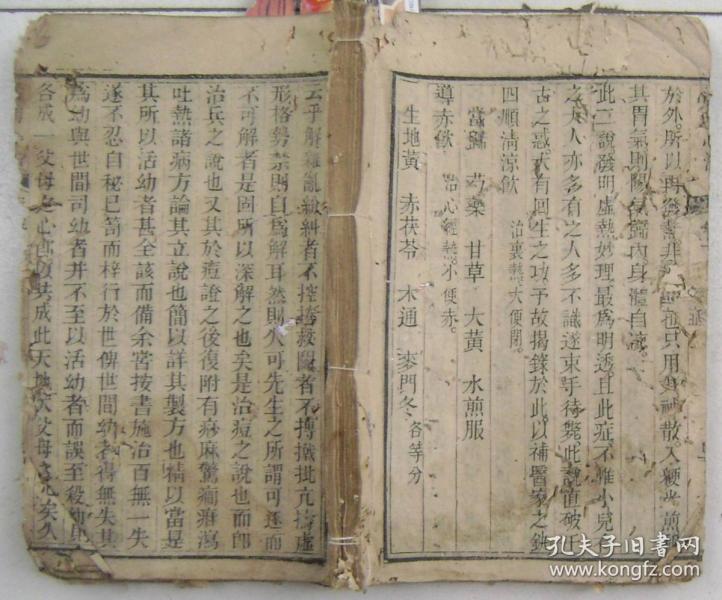 於外所以再發者非
其胃氣則陽氣歸內身體自涼
此二說發明虛熱妙理最爲明透且此症不惟小兒有
之大人亦多有之人多不識遂束手待斃此說直破千
古之惑大有回生之功予故揭錄於此以補醫家之缺
四順清涼飲 治裏熱大便閉
當歸 芍藥 甘草 大黃 水煎服
導赤飲 治心經熱小便赤
生地黃 赤茯苓 木通 麥門冬 各等分
云乎解雜亂紛糾者不控捲救鬪者不搏撠批亢擣虛
形格勢禁則自爲解耳然則久可先生之所謂可逐而
不可解者是固所以深解之也矣是治痘之說也而卽
治兵之說也又其於痘證之後復附有痧麻驚癎疳瀉
吐熱諸病方論其立說也簡以詳其製方也精以當是
其所以活幼者甚全該而備余嘗按書施治百無一失
遂不忍自秘巳篋而梓行於世俾世間幼者得無失其
爲幼與世間司幼者并不至以活幼者而誤至殺幼
各成一父母之心 共成此天地大父母之心矣久
孔夫子旧书网
www.kongfz.com